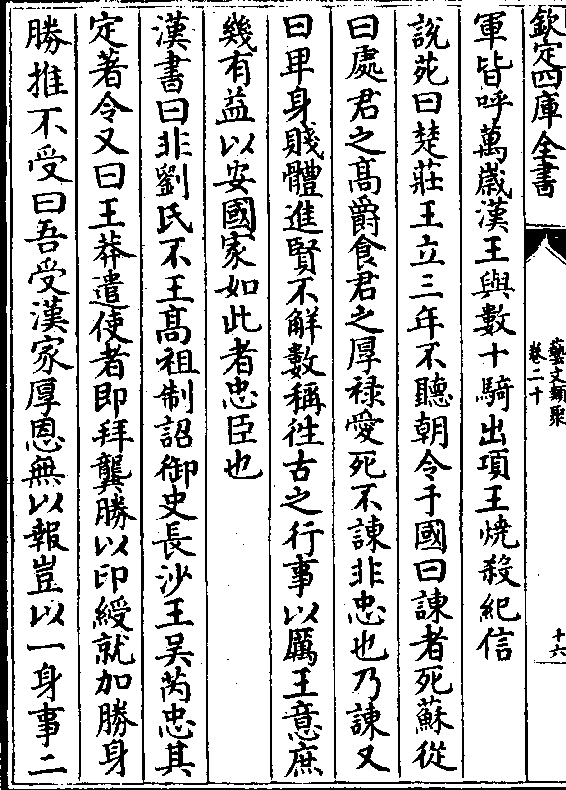 欽定四庫全書
藝文類聚
卷二十
十六
軍皆呼萬歲漢王與數十騎出項王燒殺紀信
說苑曰楚莊王立三年不聽朝令于國曰諫者死蘇從
曰處君之髙爵食君之厚禄愛死不諫非忠也乃諫又
曰卑身賤體進賢不觧數稱徃古之行事以厲王意庶
幾有益以安國家如此者忠臣也
漢書曰非劉氏不王髙祖制詔御史長沙王吴芮忠其
定著令又曰王莽遣使者即拜龔勝以印綬就加勝身
勝推不受曰吾受漢家厚恩無以報豈以一身事二